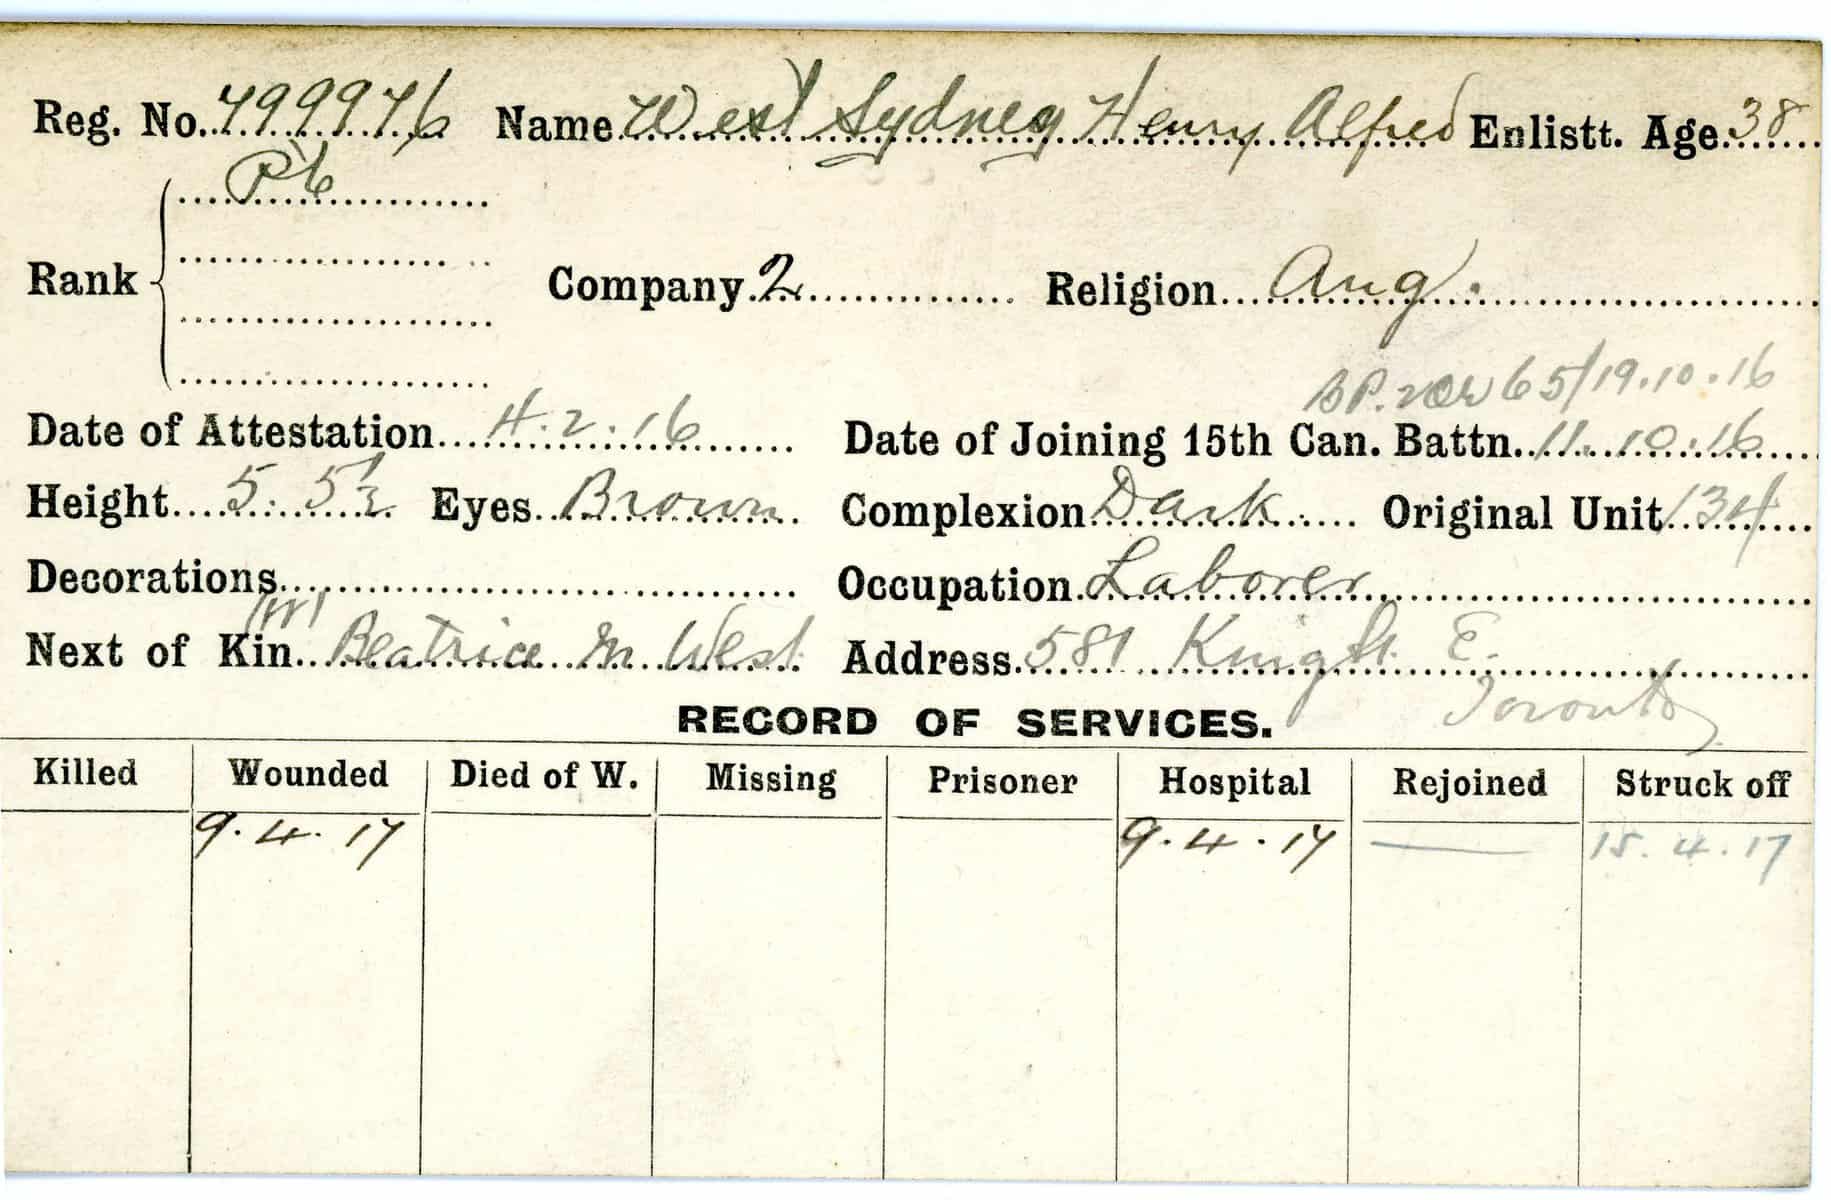 Reg. No. 799976 Name West Sydney Henry Alfred Enlistt. Age 38
Pte
Rank Company 2 Religion Ang.
65/19.10.16
Date of Attestation 4.2.16 Date of Joining 15th Can. Battn. 11.10.16
Height 5.5½ Eyes Brown Complexion Dark Original Unit 134
Decorations Occupation Laborer
(W)
Next of Kin Beatrice M West Address 581 King St. E.
Toronto
RECORD OF SERVICES.
Killed Wounded Died of W. Missing Prisoner Hospital Rejoined Struck off
9.4.17 9.4.17 — 15.4.17